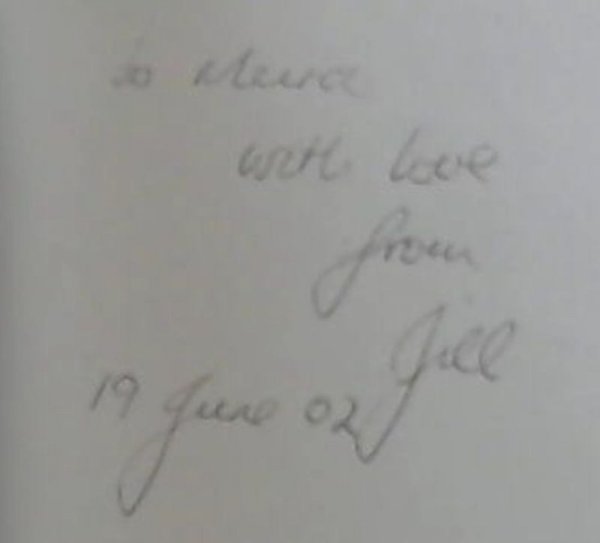 to
with love
from
Jill
19 June 02